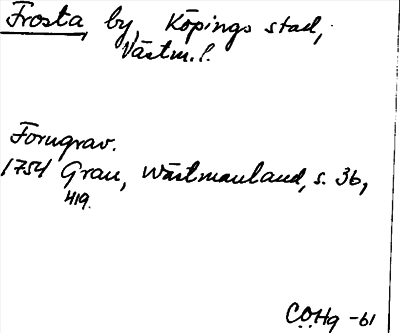 Frosta, by, Köpings stad,
Västm. l.
Forngrav.
1754 Grau, Wästmanland, s. 36,
419.
COHg -61